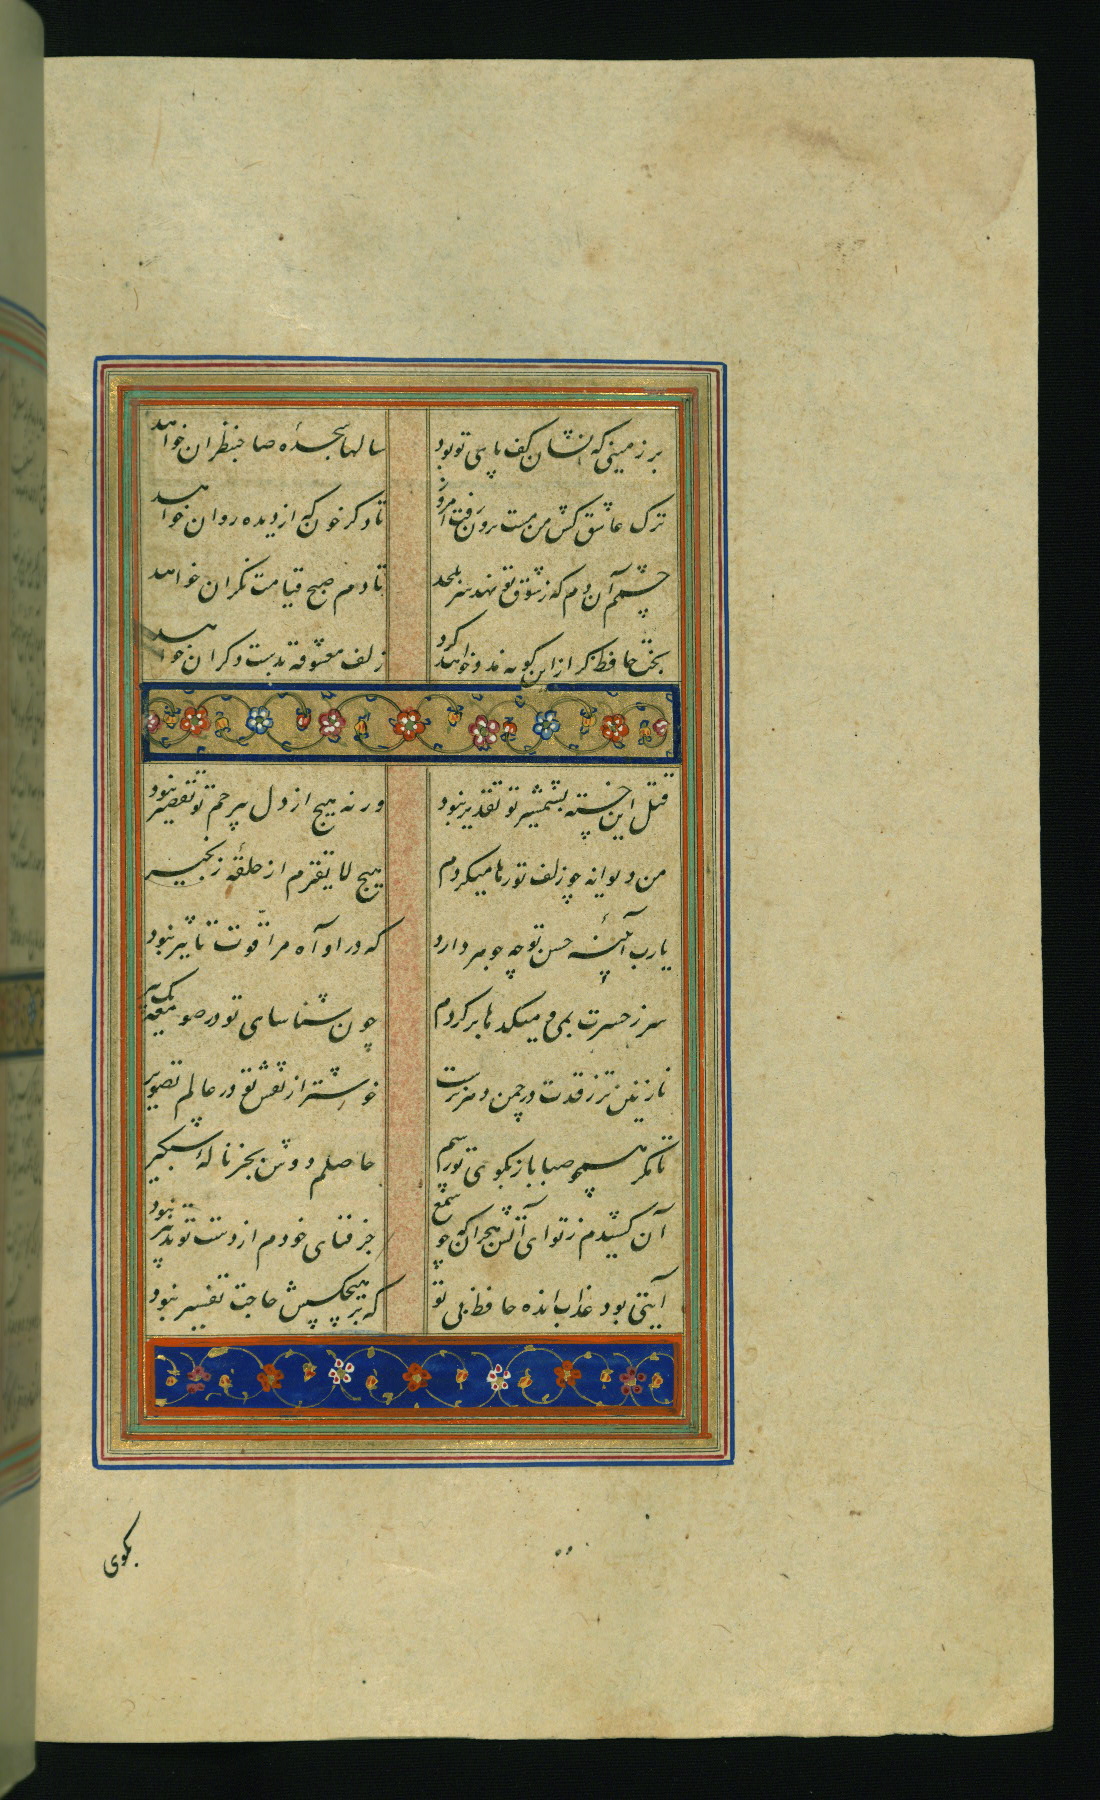 بر زمینی که نشان کف پای تو بود سالها سجدهٔ صاحبنظران خواهد
ترک عاشق کش من مست برون رفت امروز تا دکر خون که از دیده روان خواهد
چشمم آن دم که ز شوق تو نهد سر بلحد تا دم صبح قیامت نکران خواهد
بخت حافظ کر ازین کونه مدد خواهد کرد زلف معشوقه بدست دکران خواهد
قتل این خسته بشمشیر تو تقدیر نبود ور نه هیچ از دل بیرحم تو تقصیر نبود
من دیوانه چو زلف تو رها میکردم هیچ لایقترم از حلقهٔ زنجیر
یارب آئینه حسن تو چه جوهر دارد که در او آه مرا قوت تاثیر نبود
سر ز حسرت بدر میکدها بر کردم چون شناسای تو در صومعه یک پیر
نازنین تر ز قدت در چمن دهر نرست خوشتر از نقش تو در عالم تصویر
تا مکر همچو صبا باز بکوی تو رسم حاصلم دوش بجز نالهٔ شبکیر
آن کشیدم ز تو ای آتش هجران که چو شمع جز فنای خودم از دست تو تدبیر نبود
آیتی بود عذاب انده حافظ بی تو که بر هیچکسش حاجت تفسیر نبود
بکوی